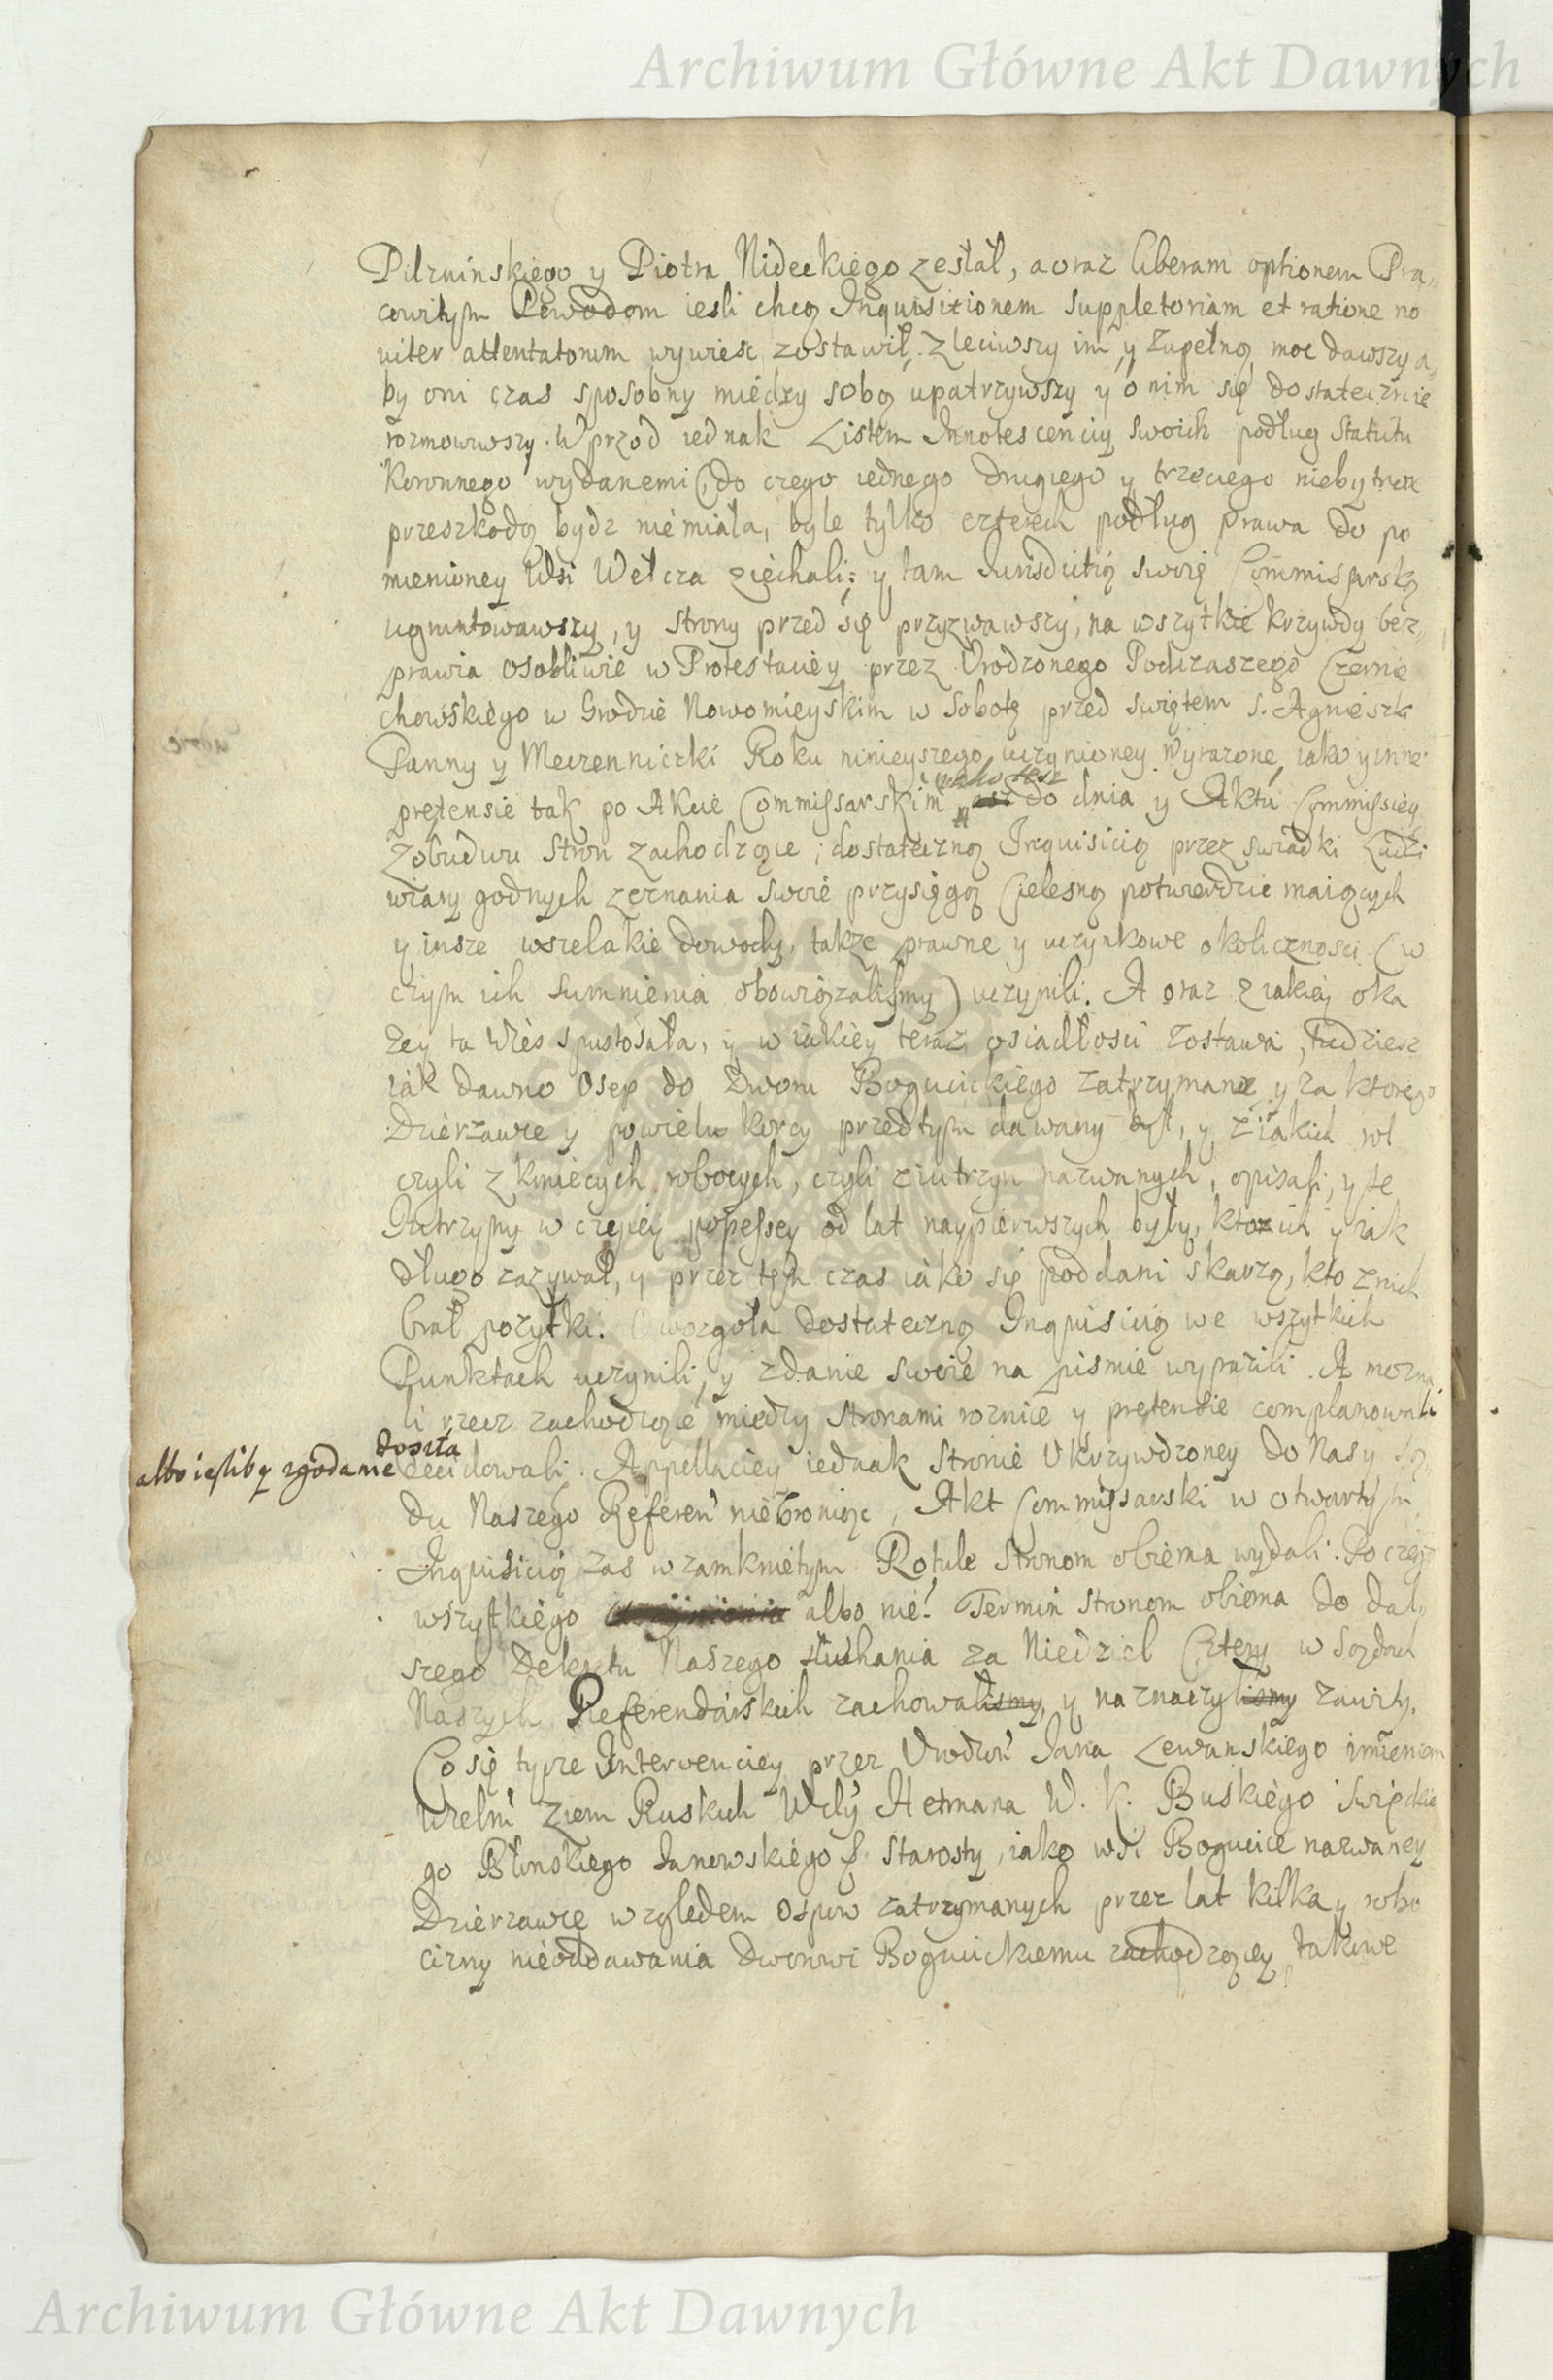 Archiwum Główne Akt Dawnych
Pilznińskiego y Piotra Nideckiego zesłał, a oraz liberam optionem Pra„
cowitym Powodom iesli chcą Inquisitionem suppletoriam et ratione no
viter attentatorum wywiesc zostawił. Zleciwszy im y zupełną moc dawszy a„
by oni czas sposobny między sobą upatrzywszy y o nim się dostatecznie
rozmowiwszy. Wprzod iednak Listem Innotescenciy swoich podług Statutu
Koronnego wydanemi (do czego iednego drugiego y trzeciego niebytność
przeszkodą bydz niemiała, byle tylko czterech podług prawa do po
mienioney Wsi Wełcza ziechali; y tam Iurisdictią swoię Commissarską
ugruntowawszy, y strony przed się przyzwawszy, na wszytkie krzywdy bez„
prawia osobliwie w Protestaciey przez Vrodzonego Podczaszego Czernie
chowskiego w Grodzie Nowomieyskim w Sobotę przed swiętem S. Agnieszki
Panny y Meczenniczki Roku ninieyszego uczynioney wyrazone, iako y inne
pretensie tak po Akcie Commissarskim iako tesz do dnia y Aktu Commissiey
Zobudwu stron zachodzące; dostateczną Inquisicią przez swiadki Ludzi
wiary godnych zeznania swoie przysięgą Cielesną potwierdzic maiących
y insze wszelakie dowody, takze prawne y uczynkowe okolicznosci (w
czym ich sumnienia obowiązalismy) uczynili. A oraz z iakiey oka
zey ta Wies spustoszała, y w iakiey teraz osiadłosci zostawa, tudziesz
iak dawno Osep do Dworu Bogucickiego zatrzymane y za ktorego
Dzierzawce y powielu korcy przedtym dawany był, y z iakich rol
czyli z kmiecych robocych, czyli z iutrzyn nazwanych, opisali, y te
Iutrzyny w czyiey possessey od lat naypierwszych były, kto ich y iak
długo zazywał, y przez ten czas iako się poddani skarzą, kto z nich
brał pozytki. Owozgoła dostateczną Inquisicią we wszytkich
Punktach uczynili, y zdanie swoie na pismie wyrazili. A mozna
li rzecz zachodzące miedzy stronami roznice y pretensie complanowali
albo iesliby zgoda nie doszła
decidowali. Appellaciey iednak stronie Vkrzywdzoney do Nas y Są„
du Naszego Referen niebroniąc, Akt Commissarski w otwartym
Inquisicią zas w zamknietym Rotule stronom obiema wydali. Po czego
wszystkiego albo nie. Termin stronom obiema do dal„
szego Dekretu Naszego słuchania za Niedziel Cztery w Sądach
Naszych Referendarskich zachowalismy y naznaczylismy zawity.
Co się tycze Interwenciey przez Vrodzon Iana Lewanskiego imieniem
Wielm Ziem Ruskich Wdy Hetmana W. K. Buskiego Swięckie
go Błonskiego Ianowskiego &. Starosty, iako wsi Bogucice nazwaney
Dzierzawcę wzgledem Ospow zatrzymanych przez lat kilka y robo
cizny nieoddawania Dworowi Bogucickiemu zachodzącey takowe
Archiwum Główne Akt Dawnych